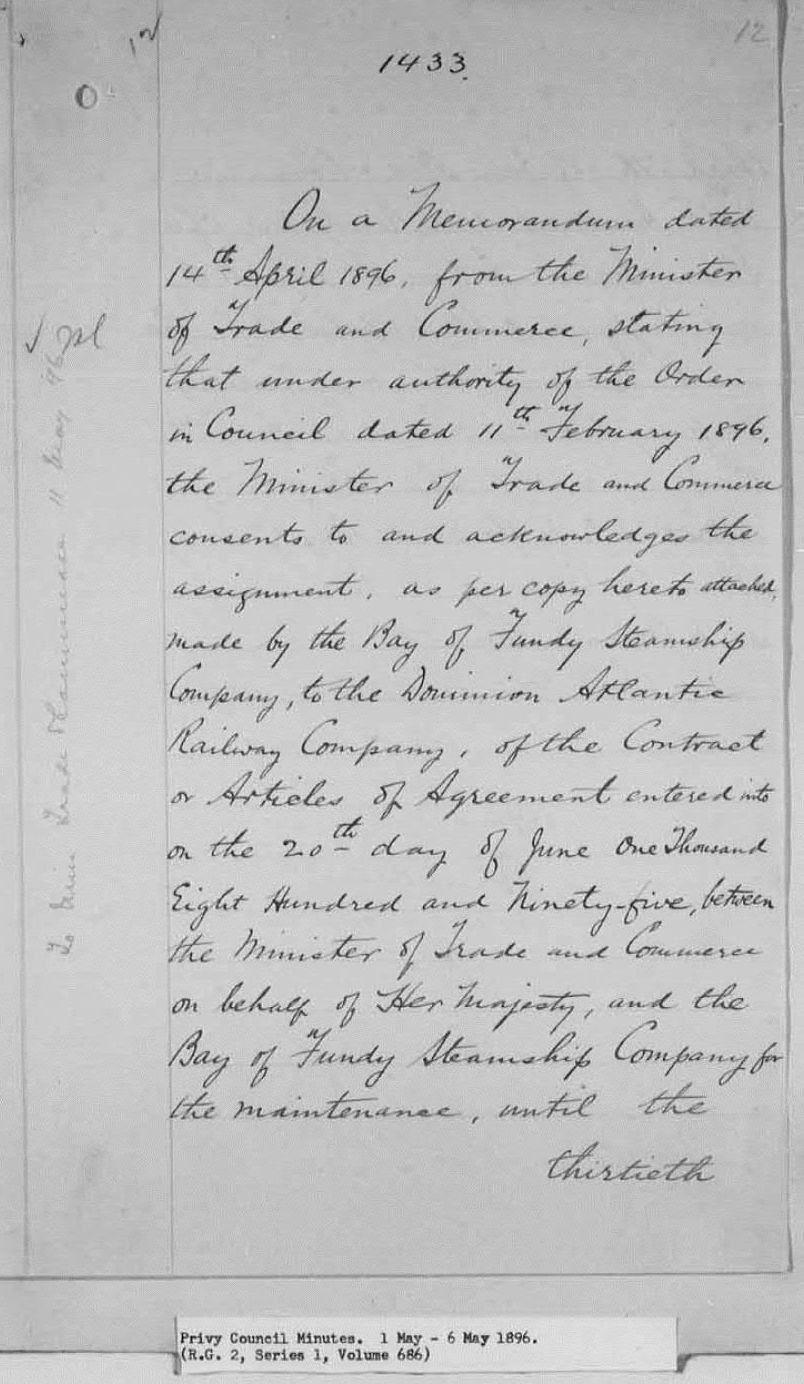 12
1433.
On a Memorandum dated
14th April 1896, from the Minister
of Trade and Commerce, stating
that under authority of the Order
in Council dated 11th February 1896,
the Minister of Trade and Commerce
consents to and acknowledges the
assignment, as per copy hereto attached,
made by the Bay of Fundy Steamship
Company, to the Dominion Atlantic
Railway Company, of the Contract
or Articles of Agreement entered into
on the 20th day of June One Thousand
Eight Hundred and Ninety-five, between
the Minister of Trade and Commerce
on behalf of Her Majesty, and the
Bay of Fundy Steamship Company for
the maintenance, until the
thirtieth
To Min Trade & Commerce 11 May 96
Privy Council Minutes. 1 May - 6 May 1896.
(R.G. 2, Series 1, Volume 686)